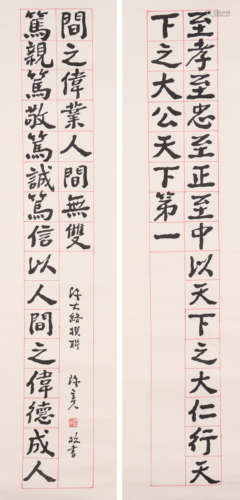 至孝至忠至正至中以天下之大仁行天
下之大公天下第一
篤親篤敬篤誠篤信以人間之偉德成人
間之偉業人間無雙
陳大絡撰聯 陳立夫 書